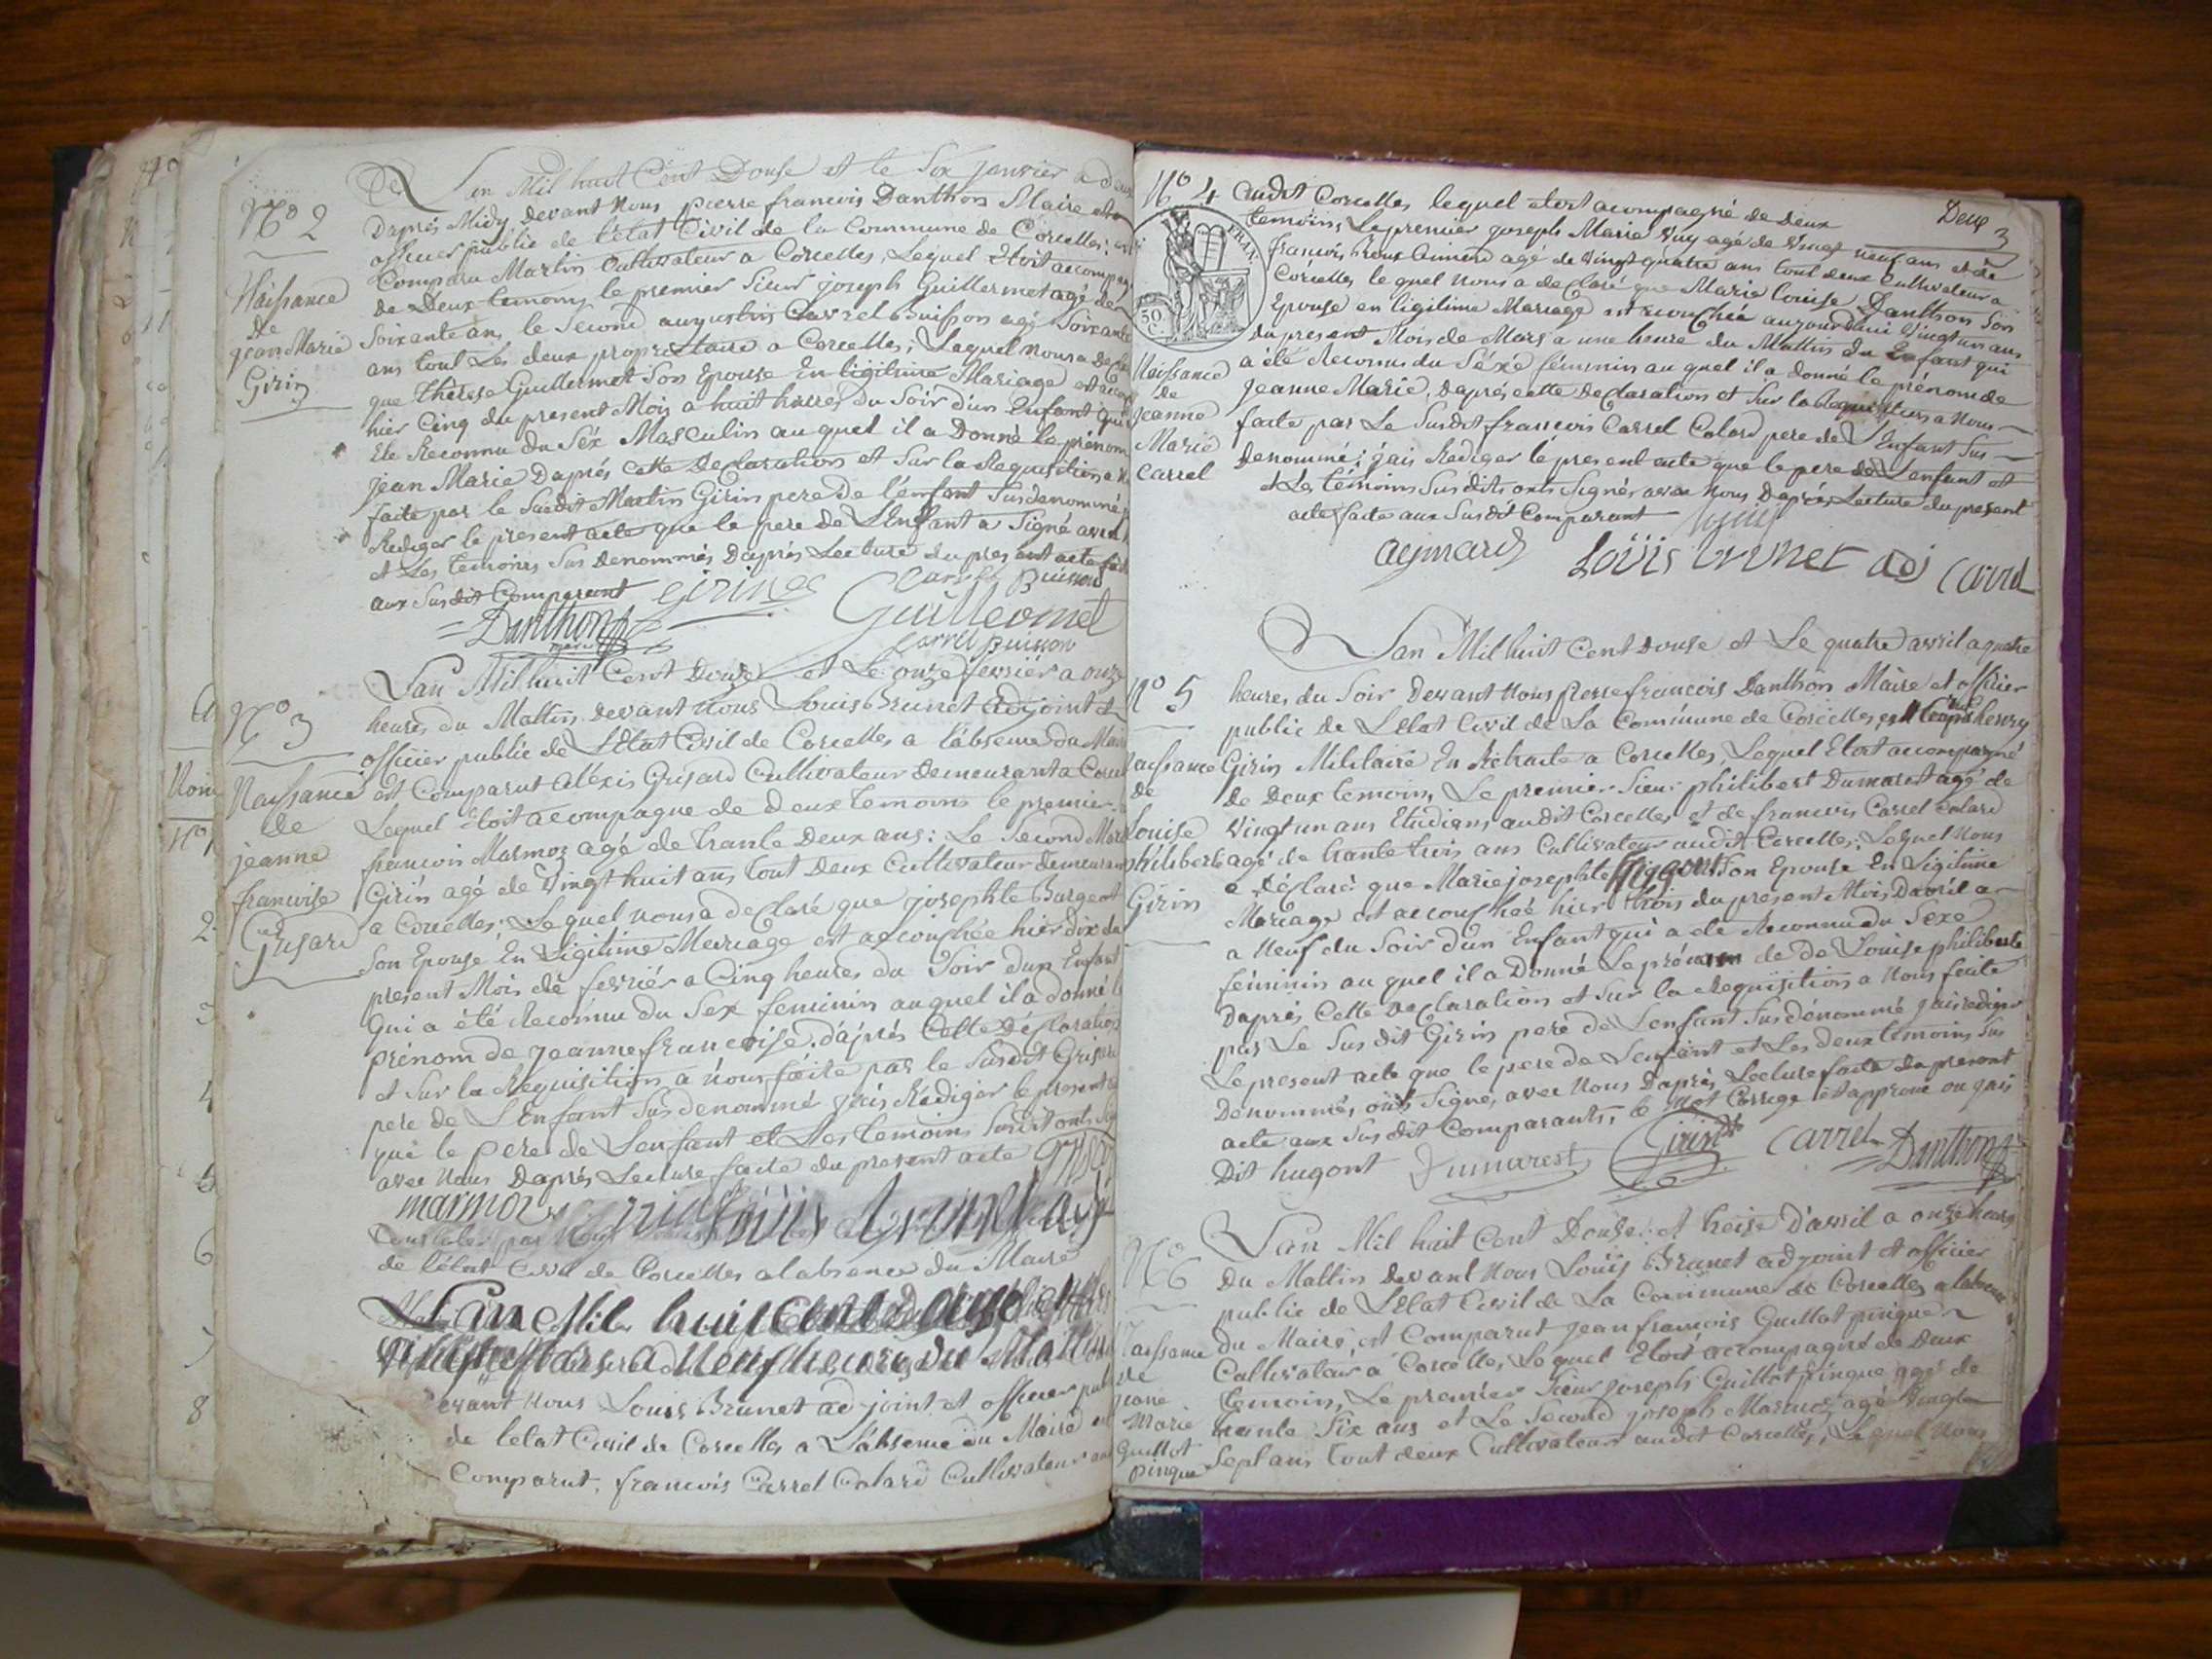 N° 2
Naissance
de
jean Marie
Girin
L'an Mil huit Cent Douse et le Six janvier a deux
Daprés Midy devant Nous pierre francois Danthon Maire et
officier public de l'etat Civil de la Commune de Corcelles; est
Comparu Martin Cultivateur a Corcelles, Lequel Etoit accompagné
de Deux temoins le premier Sieur joseph Guillermet agé de
Soixante ans, le Second augustin Carrel Buisson agé Soixante
ans tout Les deux propriettaire a Corcelles; Lequel Nous a declaré
que Thérese Guillermet Son Epouse En ligitime Mariage est
hier Cinq du present Mois a huit heures du Soir d'un Enfant qui
Ete Reconnu du Séx Masculin au quel il a Donné le prénom
jean Marie Daprés Cette declaration et Sur la Requisition a
faite par le Susdit Martin Girin pere de l'enfant Susdenommé
Rediger le present acte que le pere de L'enfant a Signé avec
et Les temoins Sus denommés Daprés Lecture du present acte faite
aux Susdit Comparant
Girin
Carrel Buisson
Guillermet
Danthon
maire
Carrel Buisson
N° 3
Naissance
de
jeanne
francoise
Grisard
L'an Mil huit Cent Douze et Le onze fevriér a onze
heures du Mattin devant nous Louis Brunet adjoint et
officier public de L'Etat Civil de Corcelles a l'absence du Maire
est Comparut Aléxis Grisard Cultivateur demeurant a Corcelles
Lequel Etoit acompagne de deux temoins le premier
francois Marmoz agé de trante Deux ans: Le Second
Girin agé de Vingt huit ans tout Deux Cultivateur demeurant
a Corcelles; Lequel nous a declaré que josephte Burgeot
Son Epouse En Ligitime Mariage est acouchée hier dix du
present Mois de fevriér a Cinq heures du Soir dun Enfant
Qui a été Reconnu du Sex feminin auquel il a donné le
prénom de jeanne francoise, d'aprés Cette Déclaration
et Sur la Requisition a nous faite par le Susdit Grisard
pere de L'Enfant Sus denommé j'ais Rédiger le present
que le pere de L'enfant et Les temoins Susdit ont
avec Nous Daprés Lecture faite du present acte
marmoz
Louis Brunet adj
Constater par Nous
de l'état Civil de Corcelles a l'absence du Maire
L'an Mil huit Cent Douze et
Mars a Neuf heures du Mattin
devant Nous Louis Brunet adjoint et officier public
de letat Civil de Corcelles a L'absence du Maire est
Comparut, francois Carrel Calard Cultivateur au
Deux
3
N° 4
50
C.
Naissance
de
Jeanne
Marie
Carrel
audit Corcelles lequel etoit acompagné de Deux
temoins, Le premier joseph Marie Vuy agé de Vingt neuf ans et de
francois agé de Vingt quatre ans tout deux Cultivateur a
Corcelles lequel nous a declaré que Marie Louise Danthon Son
Epouse en ligitime Mariage est acouchée aujourdhui Vingt un ans
du present Mois de Mars a une heure du Mattin du Enfant qui
a été Reconnu du Séxé féminin au quel il a donné le prénom de
Jeanne Marie, daprés cette Declaration et Sur la Requisition a Nous
faite par Le Susdit francois Carrel Calard pere de L'Enfant Sus
denommé; j'ais Rediger le present acte que le pere de L'enfant et
et Les témoins Susdits onts Signés avec Nous Daprés Lecture du present
acte faite aux Susdit Comparant
aymard Louis Brunet adj Carrel
N° 5
Naissance
de
Louise
Philiberte
Girin
L'an Mil huit Cent douse et Le quatre avril a quatre
heures du Soir Devant Nous Pierre francois Danthon Maire et officier
public de L'etat Civil de La Commune de Corcelles, est henry
Girin Militaire En Rétraite a Corcelles, Lequel Etoit acompagné
de Deux temoins, Le premier Sieur philibert Dumarest agé de
Vingt un ans Etudians audit Corcelles et de francois Carrel Calard
agé de trante trois ans Cultivateur audit Corcelles; Lequel Nous
a déclaré que Marie josephte hugont Son Epouse En Ligitime
Mariage est acouchée hier trois du present Mois Davril a
a Neuf du Soir d'un Enfant qui a ete Reconnu du Sexe
féminin au quel il a Donné Le prénom de de Louise philiberte
Daprés Cette declaration et Sur la Requisition a Nous faite
par Le Sus dit Girin peré de L'enfant Sus dénommé j'ais rediger
Le present acte que le pere de L'enfant et Les deux témoins Sus
Denommés, onts Signé, avec Nous Daprés Lecture faite du present
acte aux Sus dit Comparants, le Mot Corrigé Est approuvé ou j'ais
Dit hugont
Dumarest Girin Carrel Danthon
N° 6
Naissance
de
jeane
Marie
Guillot
pinque
L'an Mil huit Cent Douze: et treise D'avril a onze heures
du Mattin devant Nous Louis Brunet adjoint et officier
public de L'Etat Civil de La Commune de Corcelles a labsence
du Maire, est Comparut jean francois Guillot pinque
Cultivateur a Corcelles, Lequel Etoit accompagné de Deux
temoins, Le premier Sieur joseph Guillot pinque agé de
trente Six ans et Le Second joseph Marmoz agé Vingt
Sept ans tout deux Cultivateur audit Corcelles, Lequel Nous